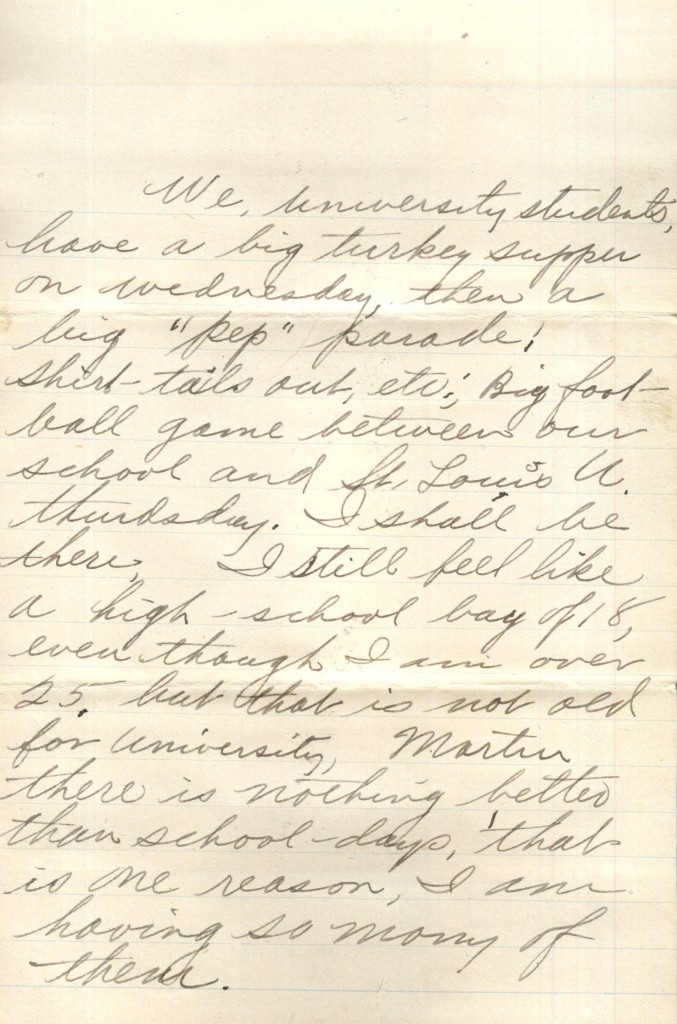 We, university students,
have a big turkey supper
on wednesday, then a
big "pep" parade;
shirt-tails out, etc; Big foot-
ball game between our
school and St. Louis U.
thurdsday. I shall be
there, I still feel like
a high-school boy of 18,
even though I am over
25, but that is not old
for university, Martin
there is nothing better
than school-days, that
is one reason, I am
having so many of
them.